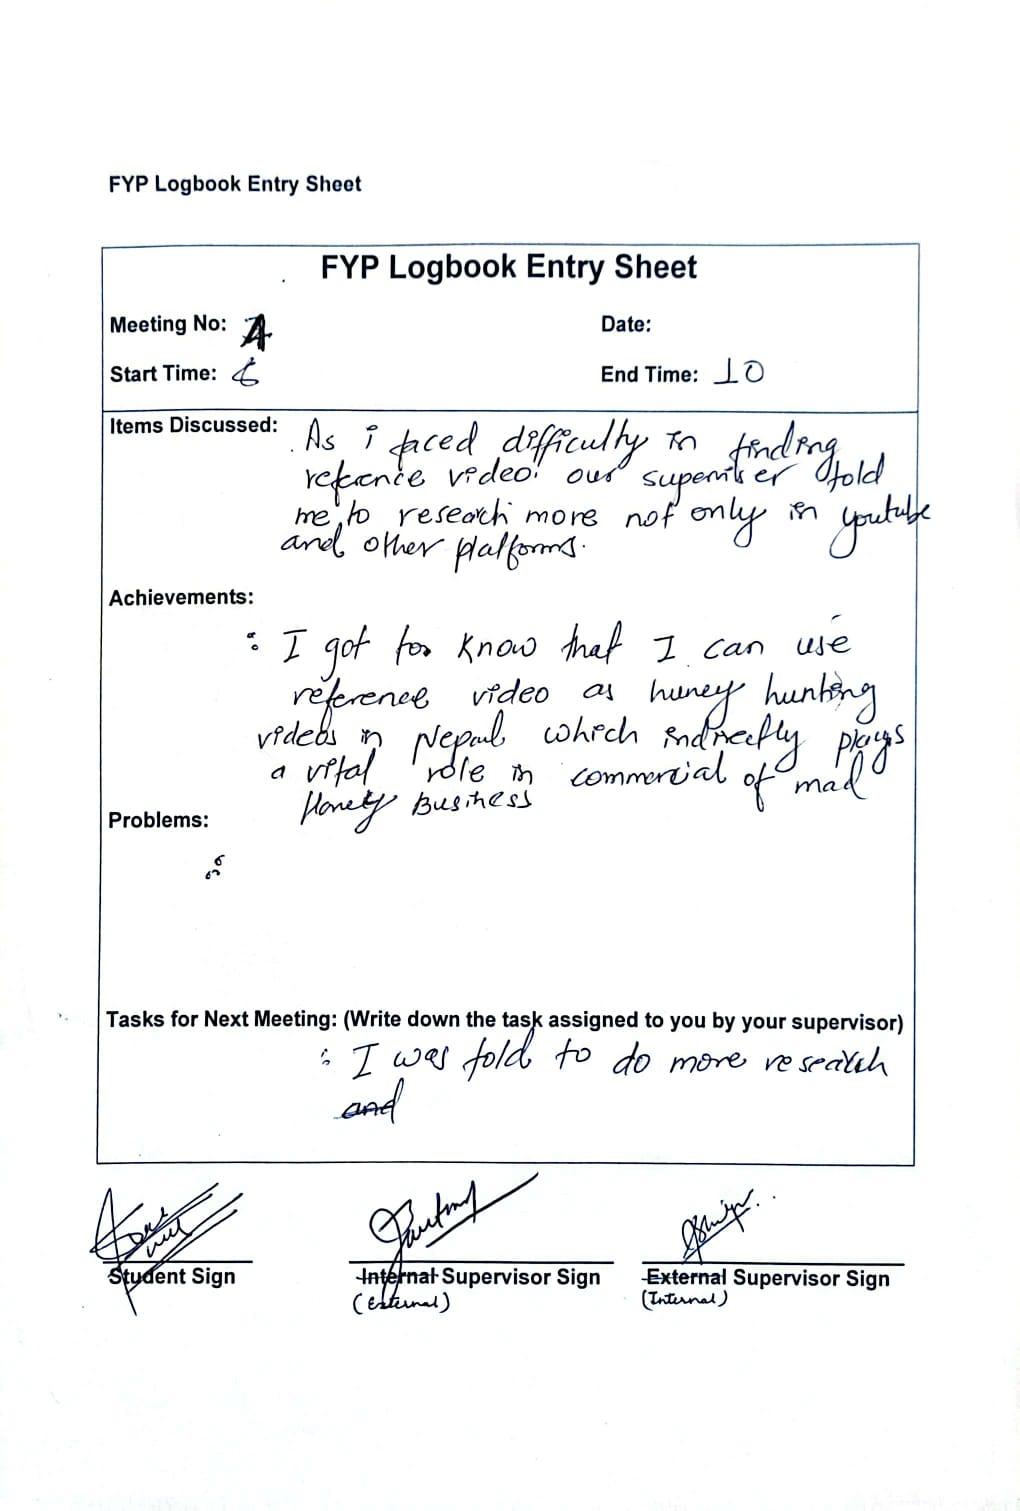 FYP Logbook Entry Sheet
FYP Logbook Entry Sheet
Meeting No: 4
Date:
Start Time: 6
End Time: 10
Items Discussed: As i faced difficulty in finding
reference video. our superviser told
me to research more not only in youtube
and other platforms.
Achievements:
: I got to know that I can use
reference video as huney hunting
videos in Nepal which indirectly plays
a vital role in commercial of mad
Honey Business
Problems:
:
Tasks for Next Meeting: (Write down the task assigned to you by your supervisor)
: I was told to do more research
and
Student Sign
Internal Supervisor Sign
(External)
External Supervisor Sign
(Internal)